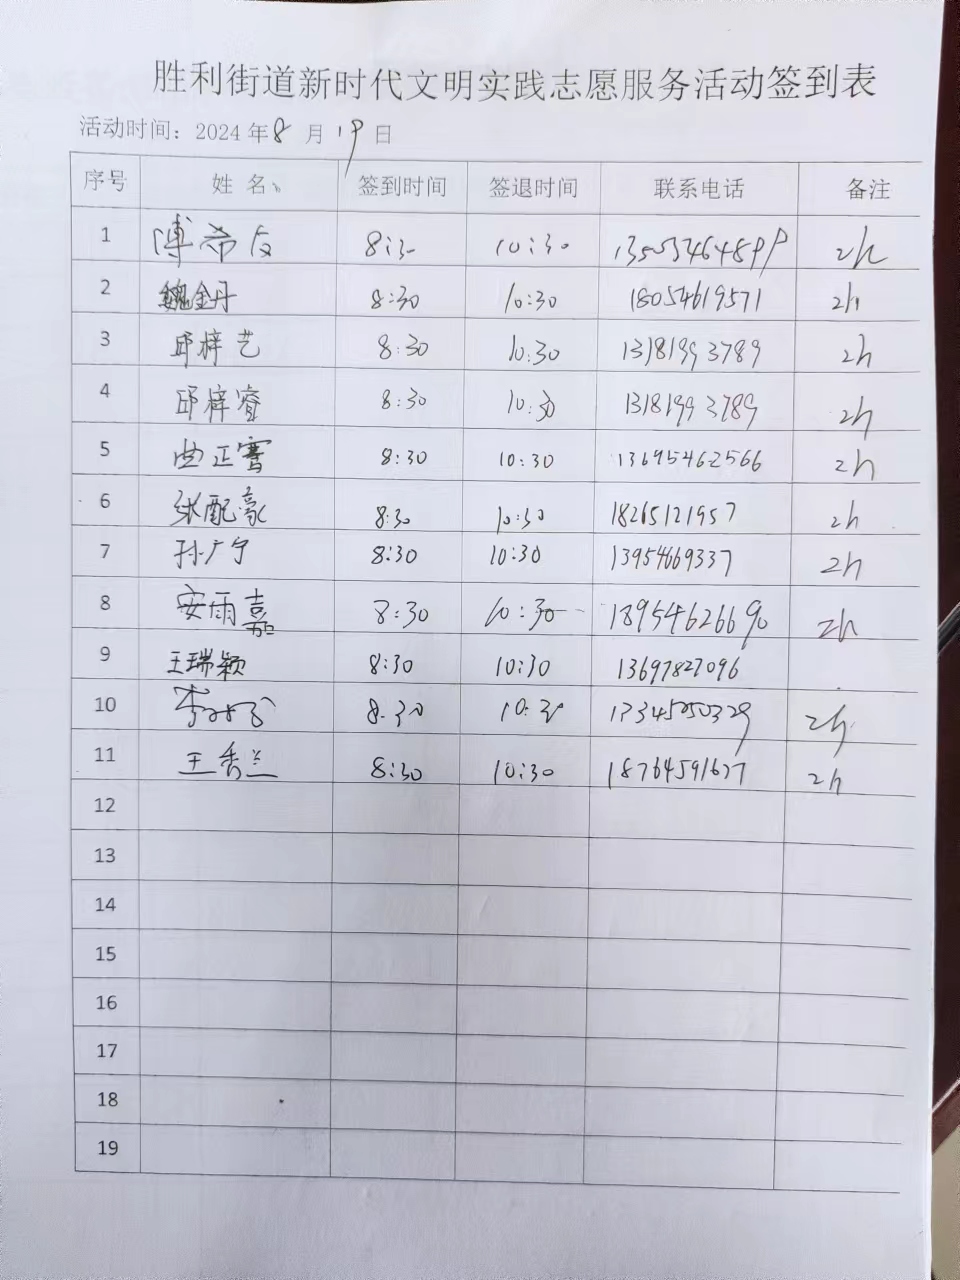 胜利街道新时代文明实践志愿服务活动签到表
活动时间：2024年8月19日
序号 姓名、 签到时间 签退时间 联系电话 备注
1 傅希友 8:30 10:30 2h
2 魏金丹 8:30 10:30 18054619571 2h
3 邱梓艺 8:30 10:30 13181993789 2h
4 邱梓睿 8:30 10:30 13181993789 2h
5 曲正骞 8:30 10:30 13695462566 2h
6 张配豪 8:30 10:30 18265121957 2h
7 孙广宁 8:30 10:30 13954669337 2h
8 安雨嘉 8:30 10:30 18954626690 2h
9 王瑞颖 8:30 10:30 13697827096
10 李 8.30 10:30 2h
11 王秀兰 8:30 10:30 18764591677 2h
12
13
14
15
16
17
18
19